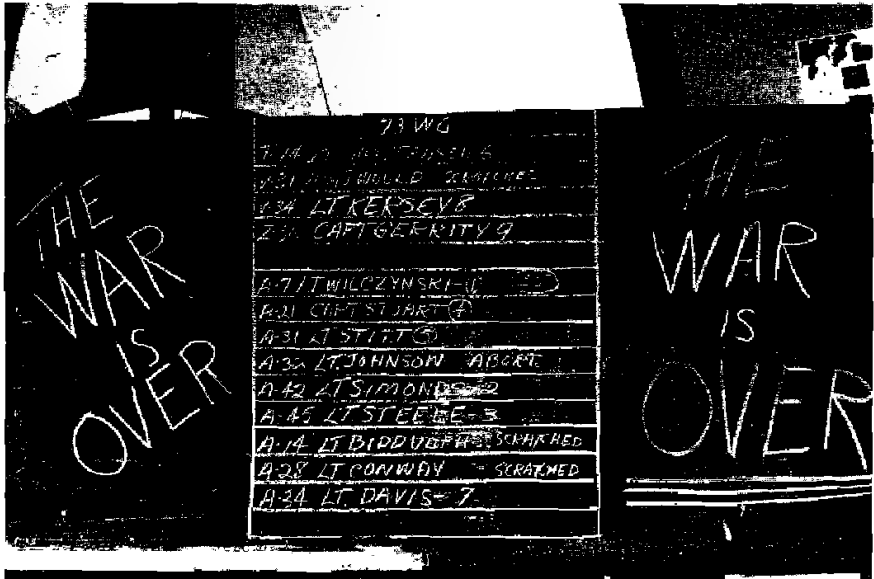 THE
WAR
IS
OVER
73 WG
LT KERSEY 8
CAPT GERRITY 9
A-7 LT WILCZYNSKI
A-21 CAPT STUART 4
A-31 LT STITT
A-32 LT. JOHNSON ABORT
A-42 LT SIMONDS-2
A-45 LT STEELE-3
A-14 LT SCRATCHED
A-28 LT CONWAY - SCRATCHED
A-34 LT. DAVIS- 7
THE
WAR
IS
OVER